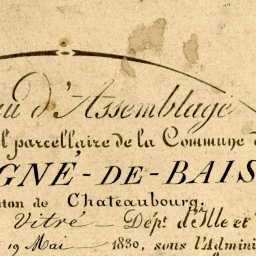 au d'Assemblage
l parcellaire de la Commune d
GNÉ-DE-BAIS
ton de Chateaubourg.
Vitré Dépt d'Ille et
19 Mai 1830, sous l'Admini